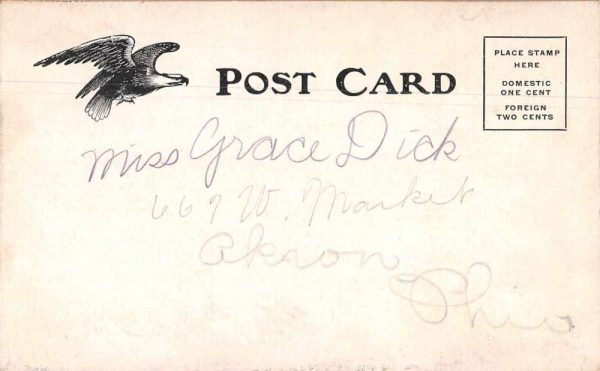 POST CARD
PLACE STAMP
HERE
DOMESTIC
ONE CENT
FOREIGN
TWO CENTS
Miss Grace Dick
667 W. Market
Akron
Ohio